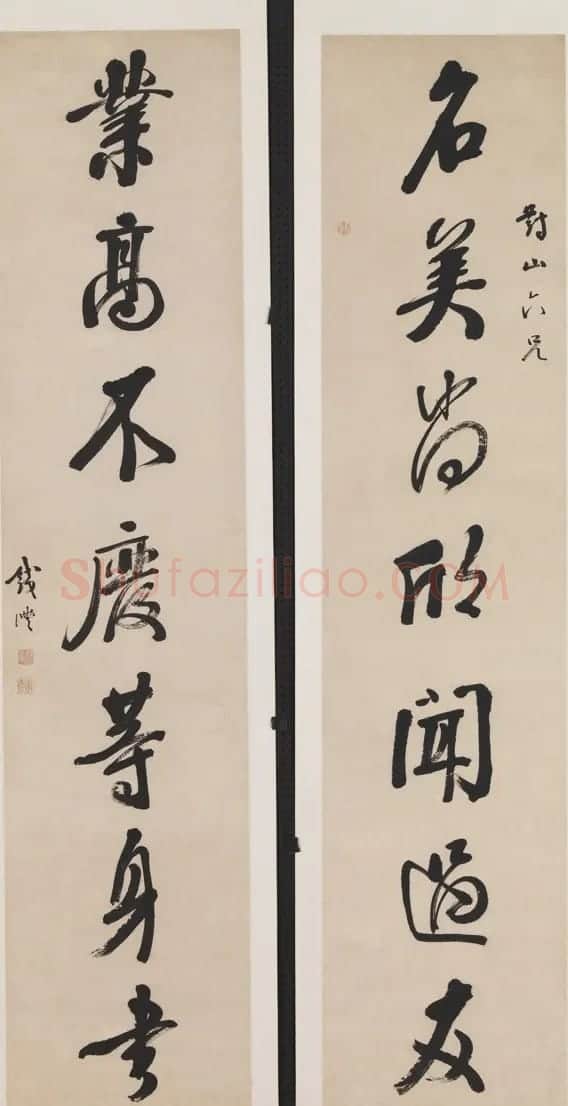 對山六兄
名美尚欣聞過友
業高不廢等身書
錢灃
Shufaziliao.COM